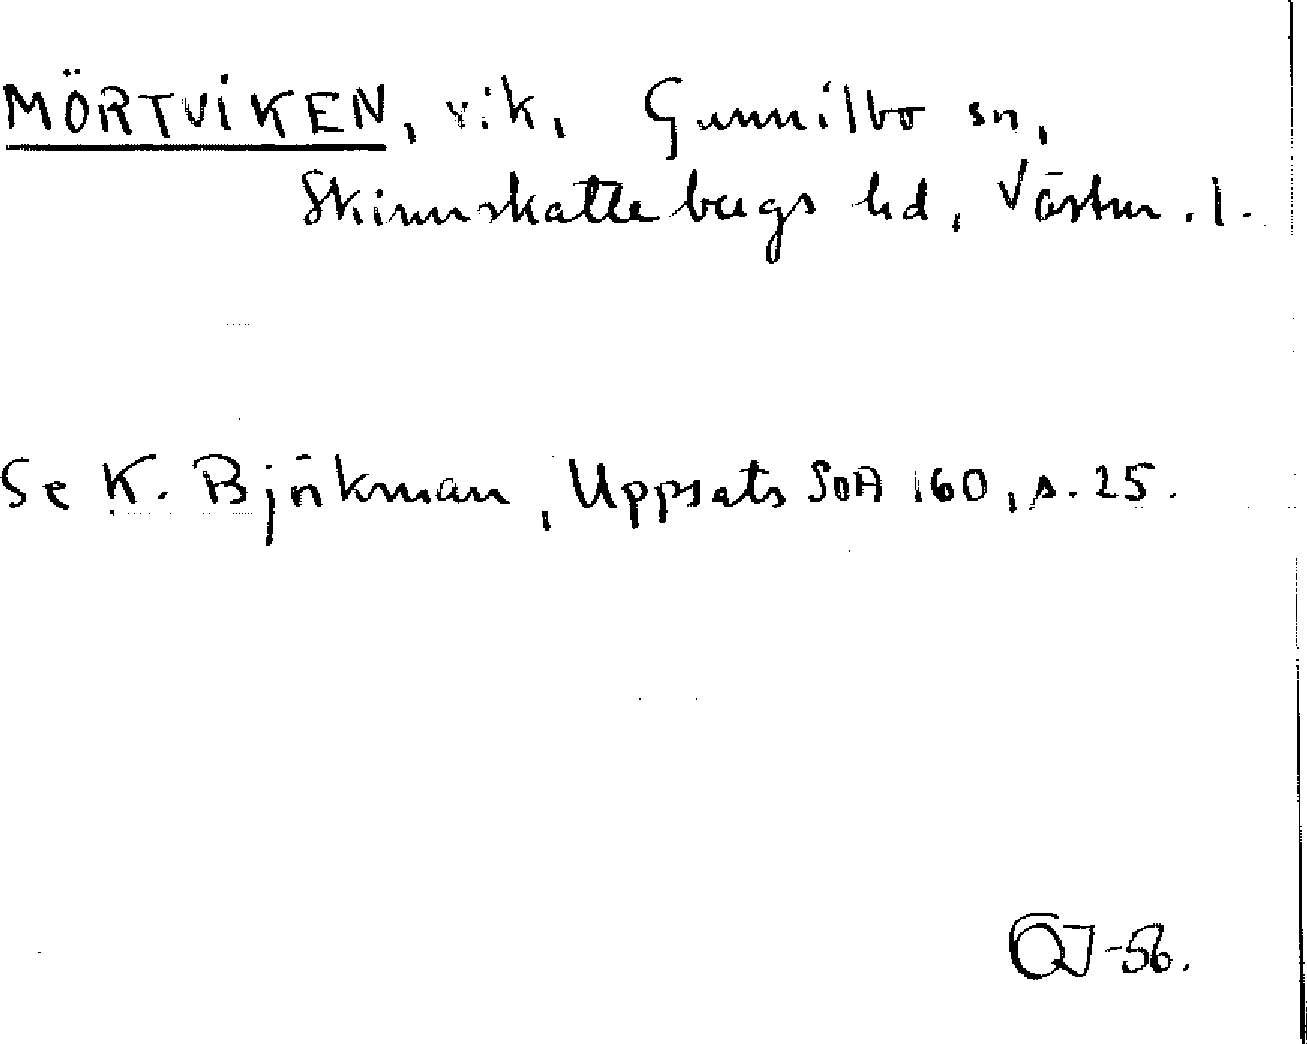 MÖRTVIKEN, vik, Gunnilbo sn,
Skinnskattebergs hd, Västm. l.
Se K. Björkman, Uppsats SOA 160, s. 25.
-56.